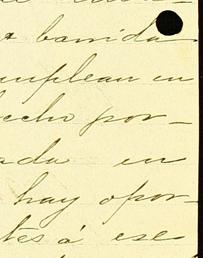 barrida
emplean en
echo por-
ada en
hay opor-
tes á ese